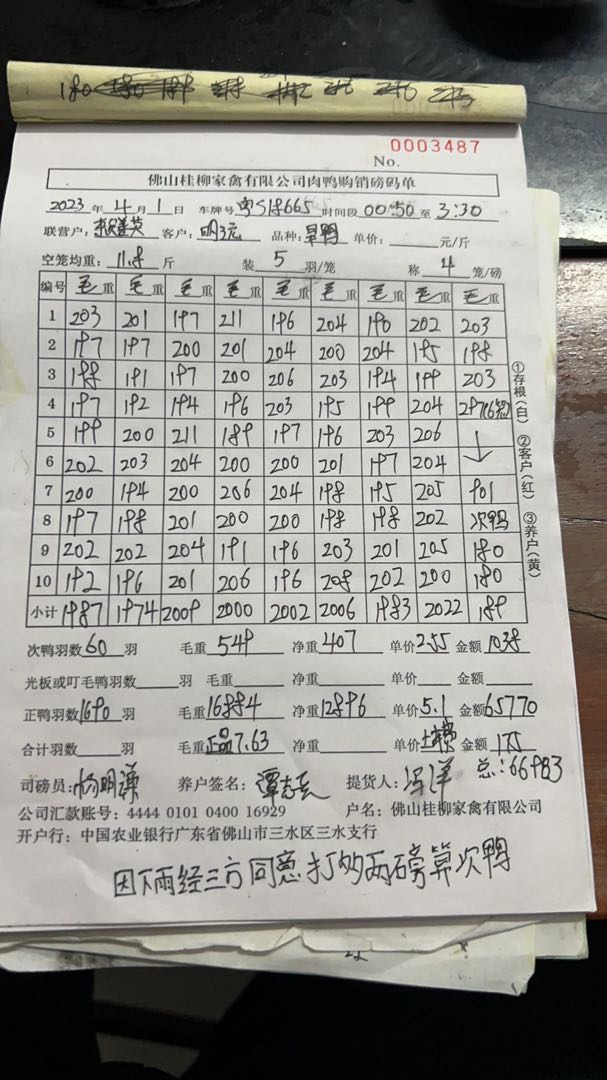 0003487
No.
佛山桂柳家禽有限公司肉鸭购销磅码单
2023 年 4 月 1 日 车牌号 粤S18665 时间段 00:50 至 3:30
联营户: 客户: 品种: 旱鸭 单价: 元/斤
空笼均重: 11.8 斤 装 5 羽/笼 称 4 笼/磅
编号 毛重 毛重 毛重 毛重 毛重 毛重 毛重 毛重 毛重
1 203 201 197 211 196 204 190 202 203
2 197 197 200 201 204 200 204 195 198
3 198 191 197 200 206 203 194 199 203
4 197 192 194 196 203 195 199 204 297(6笼)
5 199 200 211 189 197 196 203 206
6 202 203 204 200 200 201 197 204
7 200 194 200 206 204 198 195 205 901
8 197 198 201 200 200 198 198 202 次鸭
9 202 202 204 191 196 203 201 205 180
10 192 196 201 206 196 208 202 200 180
小计 1987 1974 2009 2000 2002 2006 1983 2022 189
①存根(白) ②客户(红) ③养户(黄)
次鸭羽数 60 羽 毛重 549 净重 407 单价 2.55 金额 1038
光板或叮毛鸭羽数 羽 毛重 净重 单价 金额
正鸭羽数 1690 羽 毛重 16884 净重 12896 单价 5.1 金额 65770
合计羽数 羽 毛重 正品7.63 净重 单价 金额 175
总:66983
司磅员: 杨明谦 养户签名: 提货人: 冯洋
公司汇款账号: 4444 0101 0400 16929 户名: 佛山桂柳家禽有限公司
开户行: 中国农业银行广东省佛山市三水区三水支行
因下雨经三方同意打的两磅算次鸭